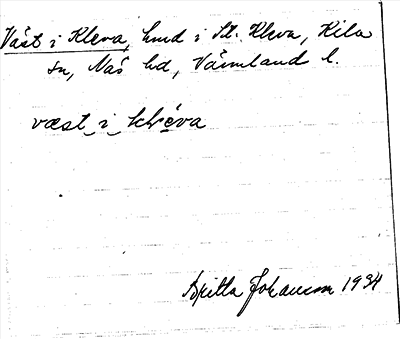 Väst i Kleva, hmd i St. Kleva, Kila
sn, Näs hd, Värmland l.
væst i kléva
Britta Johansson 1934